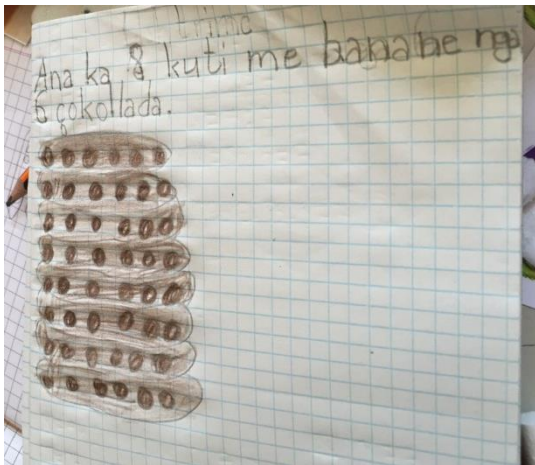 Ana ka 8 kuti me banane nga
6 çokollada.